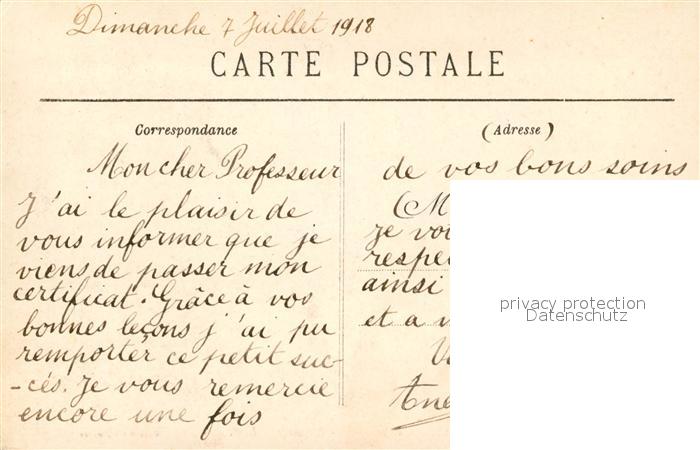 Dimanche 7 Juillet 1918
CARTE POSTALE
Correspondance
Mon cher Professeur
J'ai le plaisir de
vous informer que je
viens de passer mon
certificat. Grâce à vos
bonnes leçons j'ai pu
remporter ce petit suc-
-cés. Je vous remercie
encore une fois
(Adresse)
de vos bons soins
je
ainsi
et a
privacy protection
Datenschutz